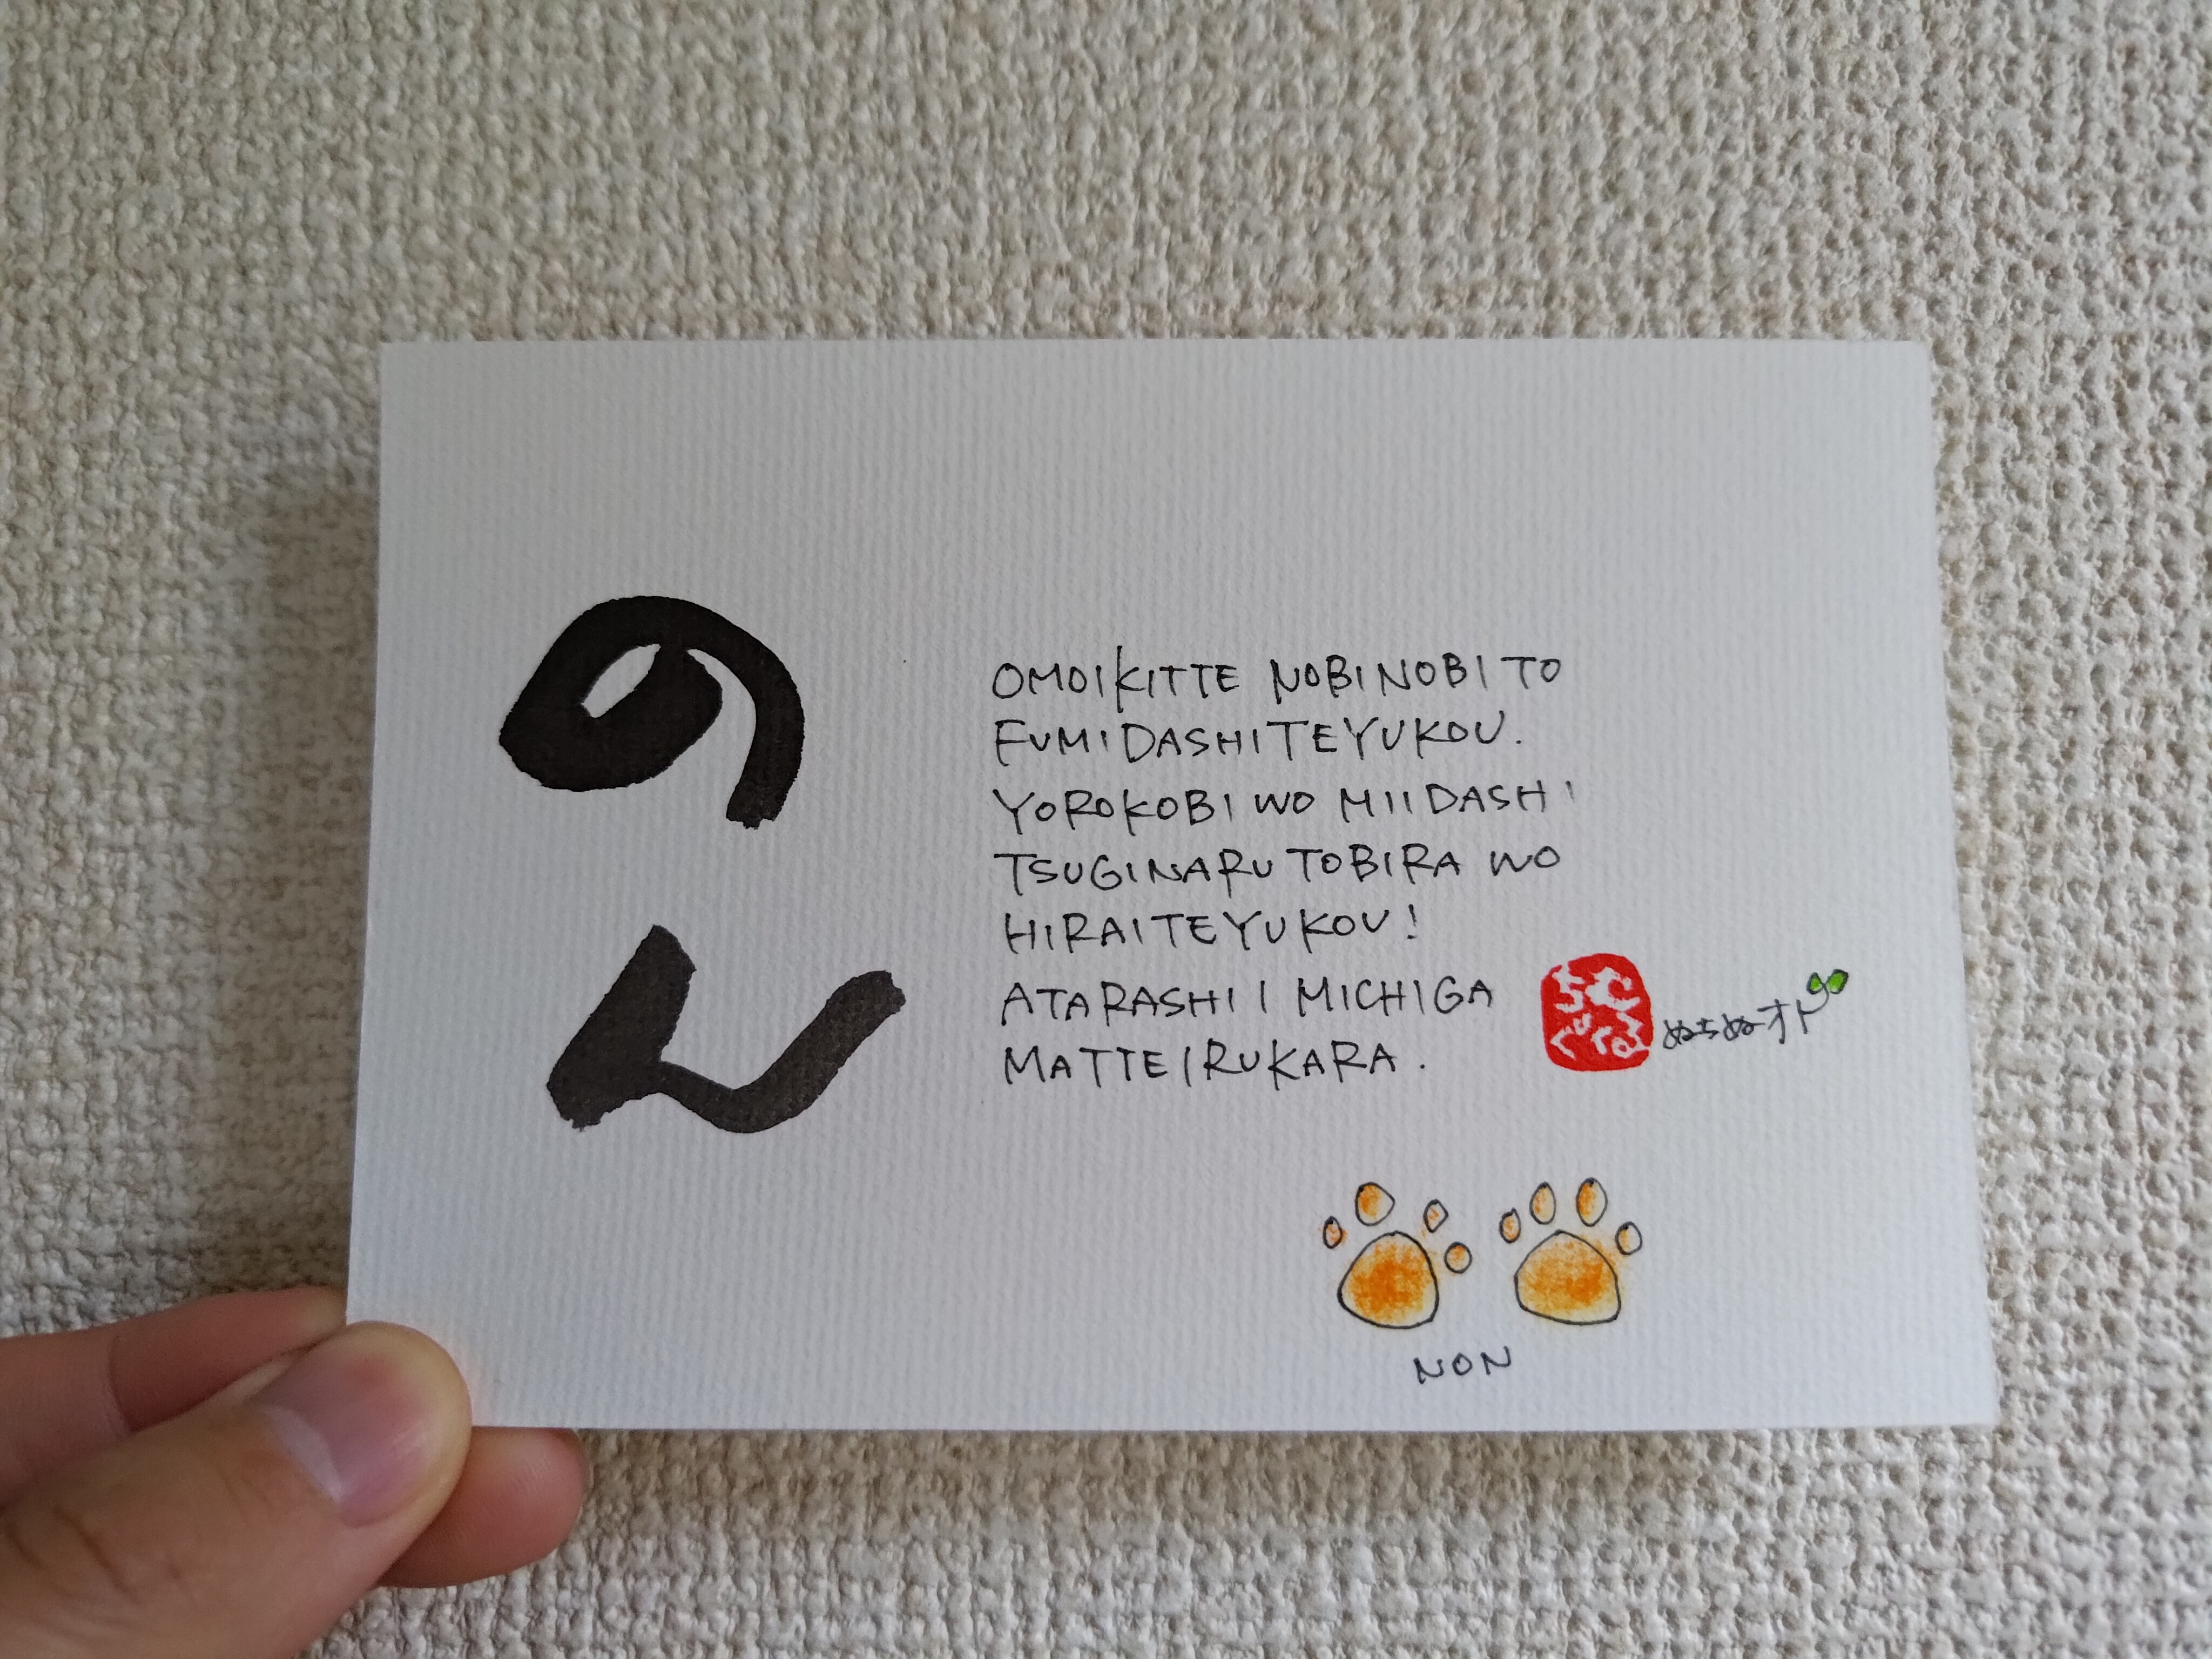 のん
OMOIKITTE NOBINOBI TO
FUMIDASHITEYUKOU.
YOROKOBI WO MIIDASHI
TSUGINARU TOBIRA WO
HIRAITEYUKOU!
ATARASHII MICHIGA
MATTEIRUKARA.
ぬちぬオト
NON